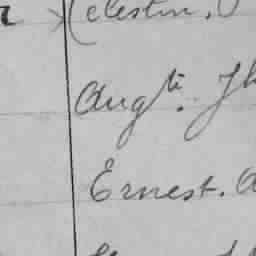 Celestin.
Augte. Jh
Ernest. a